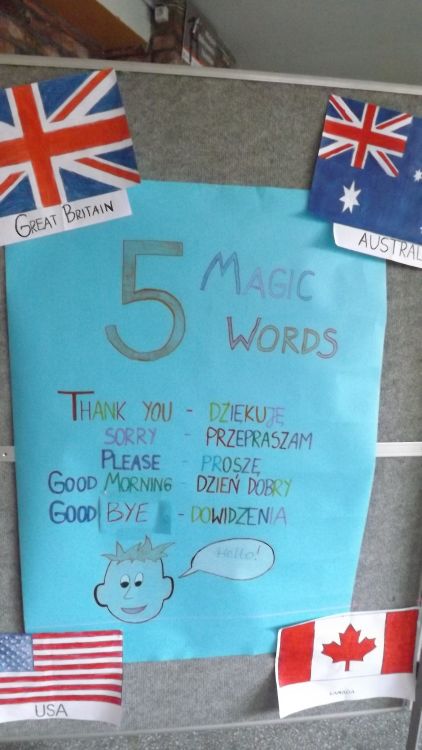 GREAT BRITAIN
AUSTRAL
5 MAGIC
WORDS
THANK YOU - DZIĘKUJĘ
SORRY - PRZEPRASZAM
PLEASE - PROSZĘ
GOOD MORNING - DZIEŃ DOBRY
GOOD BYE - DOWIDZENIA
Hello!
USA
CANADA